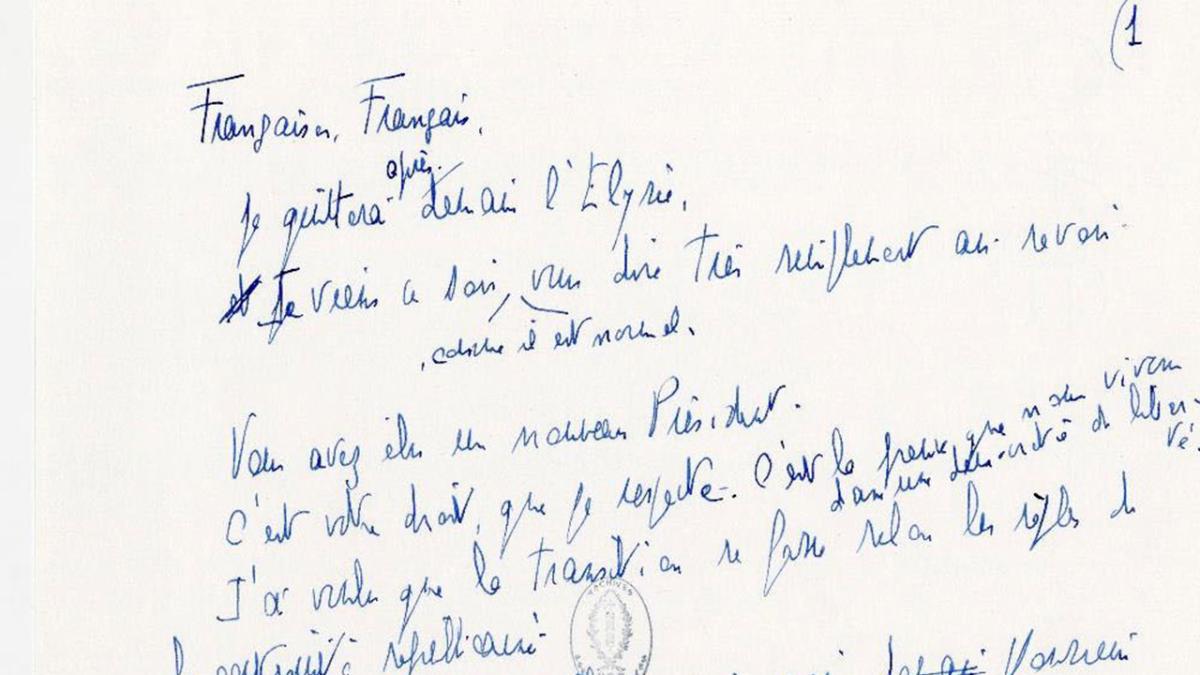 (1
Françaises, Français,
après-
Je quitterai demain l'Elysée.
et Je viens ce soir, vous dire très simplement au-revoir.
, comme il est normal.
Vous avez élu un nouveau Président.
C'est votre droit, que je respecte. C'est la preuve que nous vivons
dans une démocratie de liber-
té.
J'ai voulu que la transition se fasse selon les règles de
la continuité républicaine
ARCHIVES